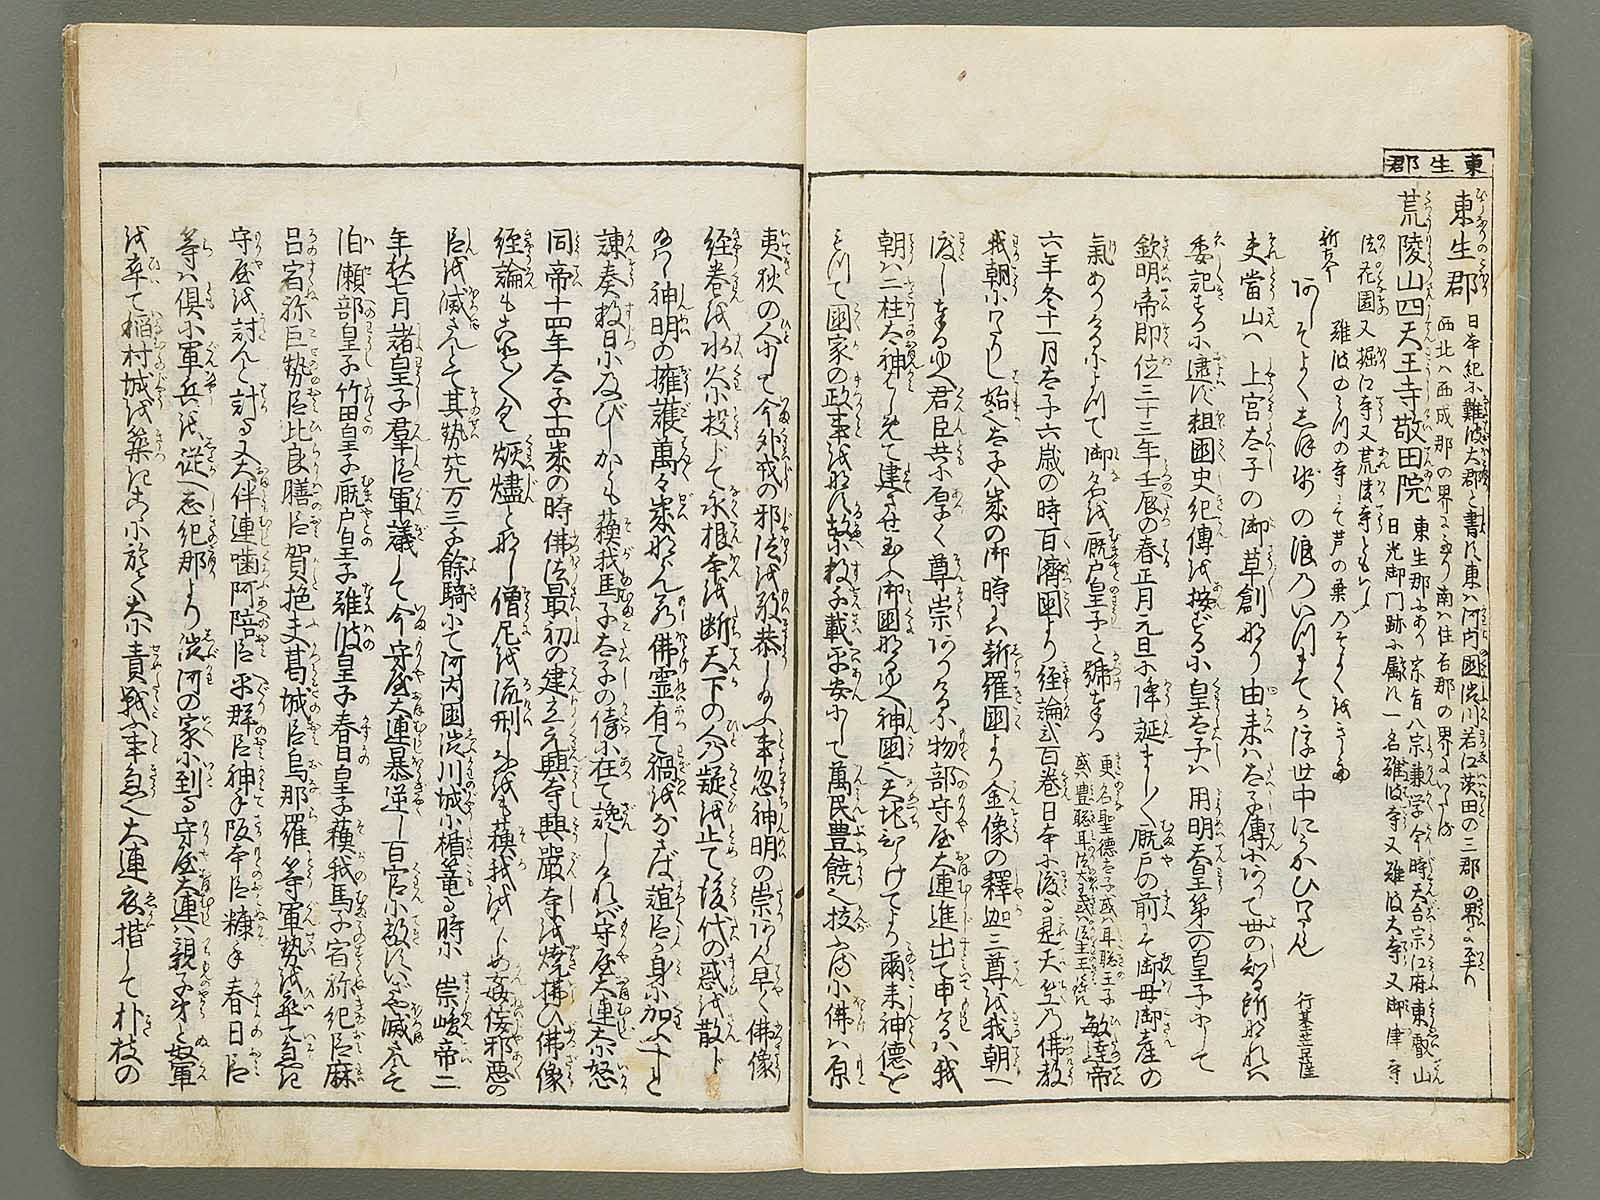 東生郡
東生郡 日本紀に難波大郡と書す東ハ河内國渋川若江茨田の三郡の界に至り
西北ハ西成郡の界にあり南ハ住吉郡の界にいたる
荒陵山四天王寺敬田院 東生郡にあり宗旨八宗兼学今時天台宗江府東叡山
日光御門跡に屬す一名難波寺又難波大寺又御津寺
法花園又堀江寺又荒陵寺ともいふ
難波のみつの寺にて芦の葉のそよくをきゝて
新古今 あしそよくしほせの浪のいつまてかうき世中にうかひわたらん 行基菩薩
夫當山ハ上宮太子の御草創なり由来ハ太子傳にありて世の知る所なれハ
委記するに遑なし粗國史紀傳を按ずるに皇太子ハ用明天皇第一の皇子にして
欽明帝即位三十三年壬辰の春正月元旦に降誕まし〳〵厩戸の前にて御母御産の
氣ありけるによつて御名を厩戸皇子と號奉る 更名聖徳太子或ハ耳聡王子
或ハ豊聡耳法大王或ハ法主王と號す 敏達帝
六年冬十一月太子六歳の時百濟國より経論貳百巻日本に渡る是天台乃佛教
我朝にわたりし始也太子八歳の御時には新羅國より金像の釋迦三尊を我朝へ
渡し奉るゆへ君臣共に厚く尊崇ありけるに物部守屋大連進出て申けるハ我
朝ハ二柱太神はしめて建させ玉ふ御國なるゆへ神國也天地ひらけてより爾来神徳を
もつて國家の政事をなす故に載平安にして萬民豊饒也抜るに佛ハ原
夷狄の人にして今外戎の邪法を敬恭し給ふ事忽神明の祟あらん早く佛像
経巻を水火に投じて永根本を断天下の人の疑を止て後代の惑を散ト
給ハ神明の擁護萬々歳ならん若佛霊有て禍をなさば誼臣が身に加ふべしと
諫奏数日に及びしかども蘓我馬子太子の傍に在て讒しけれバ守屋大連大に怒
同帝十四年太子十四歳の時佛法最初の建立元興寺興嚴寺を焼拂ひ佛像
経論も悉く灰燼となし僧尼を流刑し蘓我をはじめ姦佞邪惡の
臣を滅さんとて其勢九万三千餘騎にて河内国渋川城に楯篭る時に 崇峻帝二
年秋七月諸皇子羣臣軍議して今守屋大連暴逆して百官に敵すいざや滅さんとて
泊瀬部皇子竹田皇子厩戸皇子難波皇子春日皇子蘓我馬子宿祢紀臣麻
呂宿祢巨勢臣比良膳臣賀拖夫葛城臣烏那羅等軍勢を率て急に
守屋を討んと討る又大伴連嚙阿陪臣平群臣神手阪本臣糠手春日臣
等ハ倶に軍兵を従へ志紀郡より渋河の家に到る守屋大連ハ親子弟と奴軍
を率て稲村城を築きこゝに於て大に責戦ふ事急也大連衣揩して朴枝の